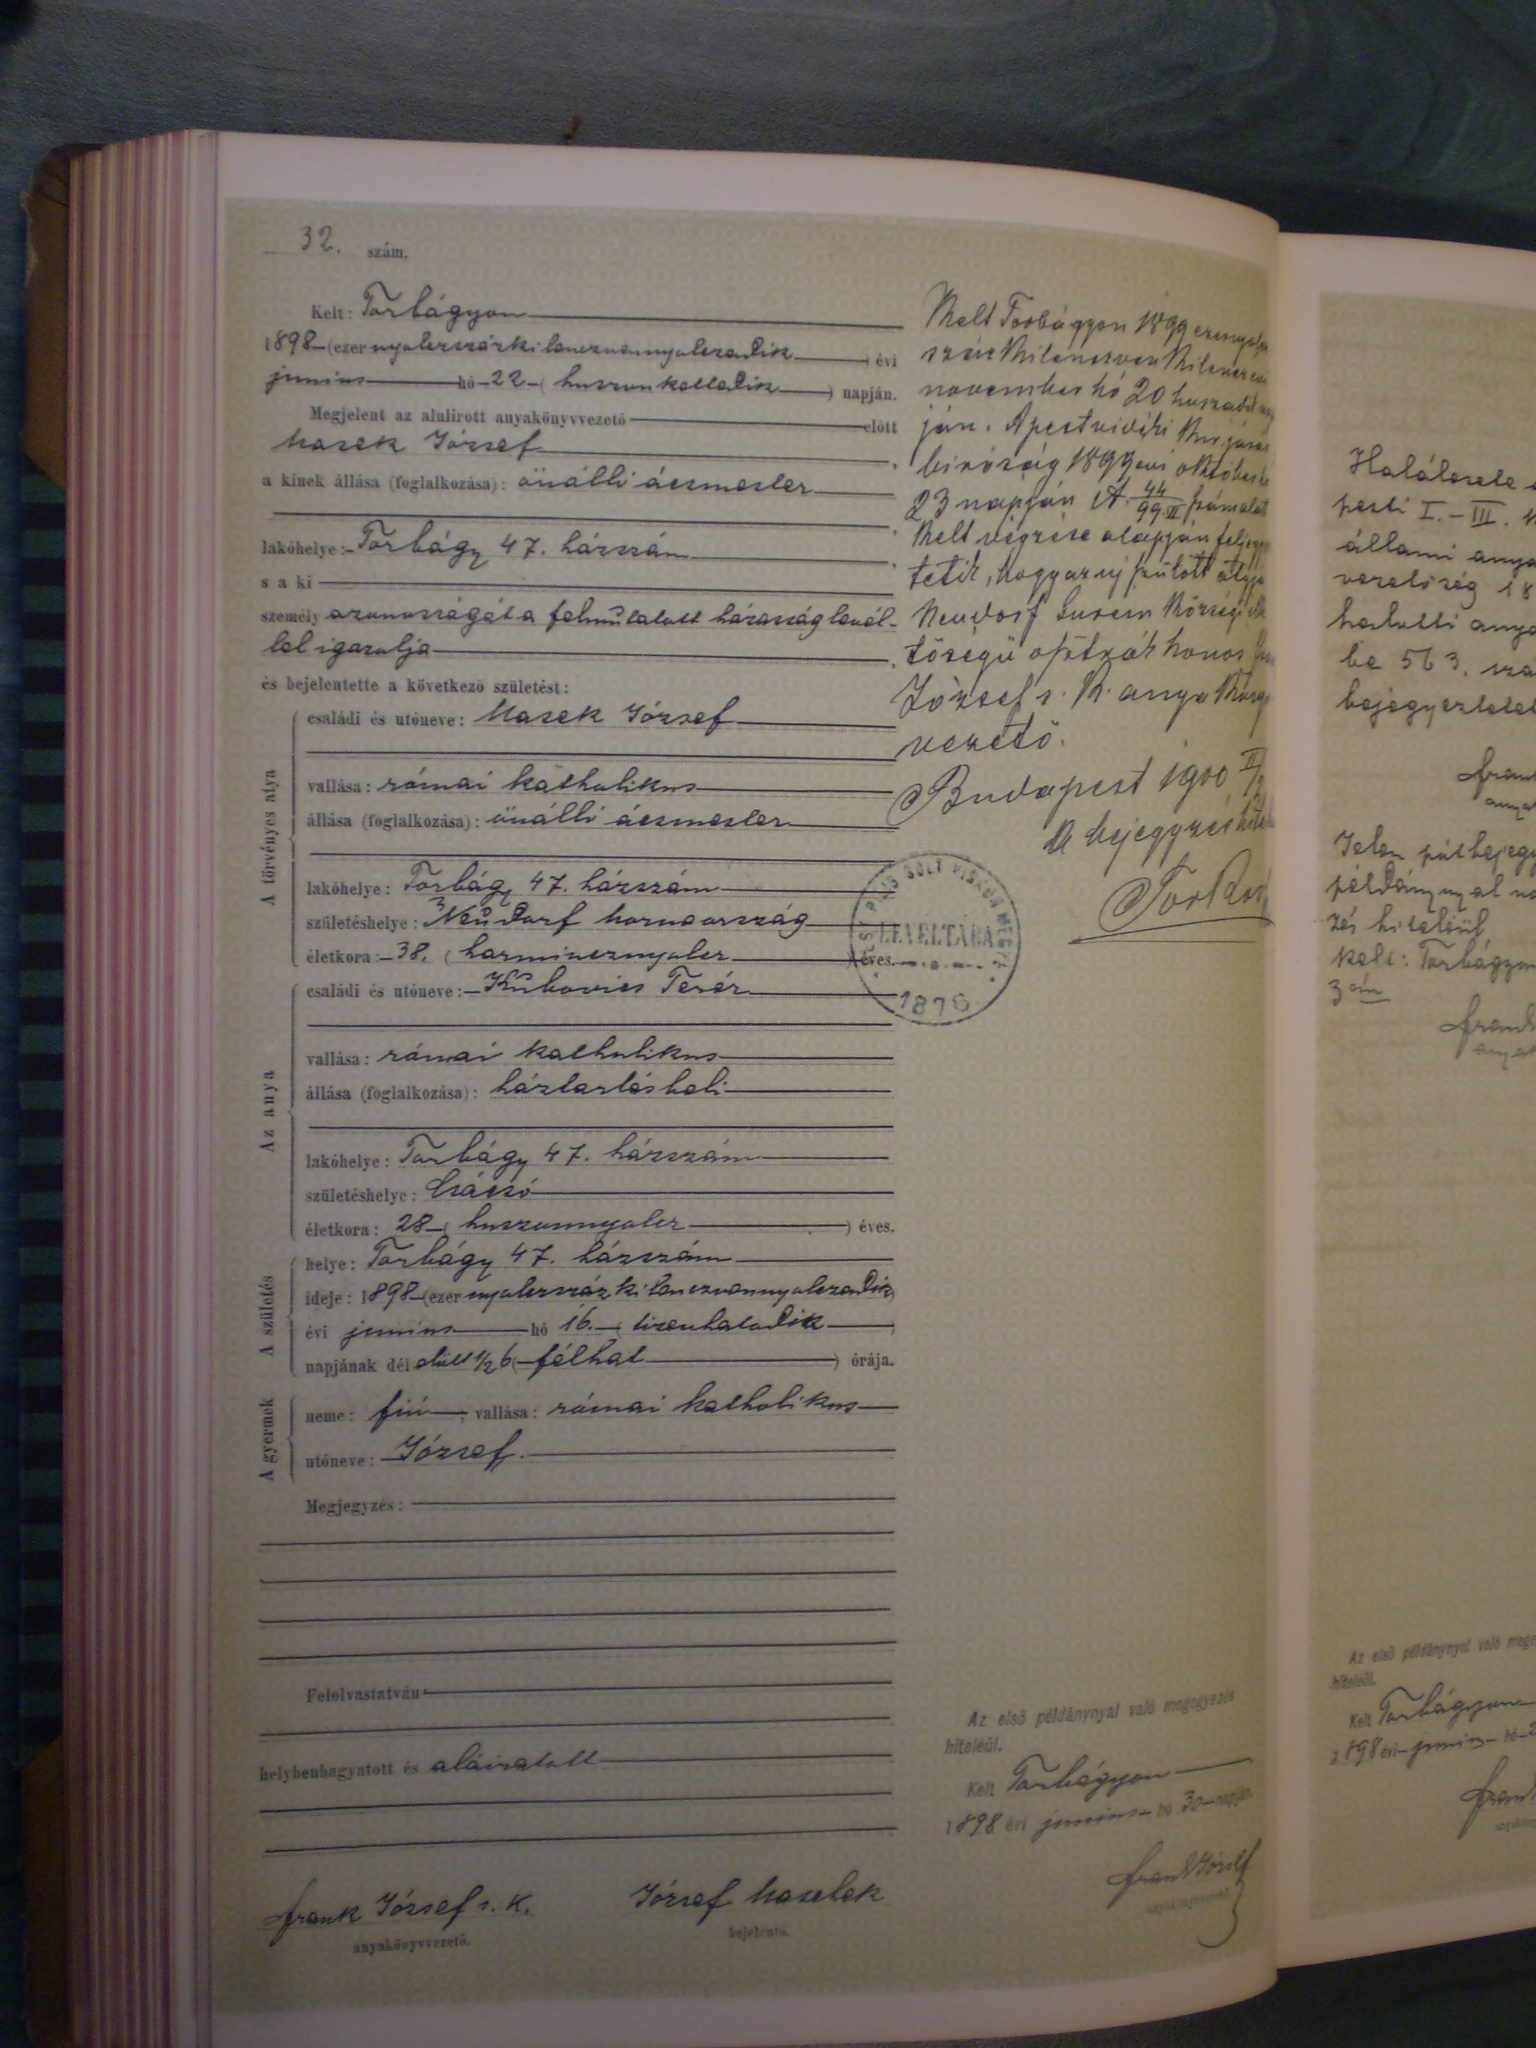 32. szám.
Kelt: Torbágyon
1898 (ezer nyolczszázkilenczvennyolczadik) évi
junius hó 22 (huszonkettedik) napján.
Megjelent az alulirott anyakönyvvezető előtt
Masek József,
a kinek állása (foglalkozása): önálló ácsmester
lakóhelye: Torbágy 47. házszám
s a ki
személyazonosságát a felmutatott házasság levél-
lel igazolja
és bejelentette a következő születést:
A törvényes atya
családi és utóneve: Masek József
vallása: római katholikus
állása (foglalkozása): önálló ácsmester
lakóhelye: Torbágy 47. házszám
születéshelye: Neudorf
életkora: 38. (harmincznyolcz) éves.
Az anya
családi és utóneve: Kubovics Teréz
vallása: római katholikus
állása (foglalkozása): háztartásbeli
lakóhelye: Torbágy 47. házszám
születéshelye: Csácsó
életkora: 28 (huszonnyolcz) éves.
A születés
helye: Torbágy 47. házszám
ideje: 1898 (ezer nyolczszázkilenczvennyolczadik)
évi junius hó 16. (tizenhatodik)
napjának dél előtt 1/2 6 (félhat) órája.
A gyermek
neme: fiú; vallása: római katholikus
utóneve: József.
Megjegyzés:
Felolvastatván
helybenhagyatott és aláiratott
Frank József s. k.
anyakönyvvezető.
József
bejelentő.
Kelt Torbágyon 1899
november hó 20 huszadik
ján. A pestvidéki kir. járás
biróság 1899 évi október
23 napján A. 44/99.II számalat
kelt végzése alapján feljegy
tetik, hogy az uj szülött atyja
Neudorf községi
tőségü osztrák honos
József s. k. anyakönyv
vezető.
Budapest 1900 II/
A bejegyzés
LEVÉLTÁRA
1876
Az első példánynyal való megegyezés
hiteléül.
Kelt Torbágyon
1898 évi junius hó 30 napján.
Frank József
anyakönyvvezető
Halálesete
pesti I.-III.
állami anya
vezetőség 18
halotti anya
be 563. szá
bejegyeztetet
Jelen
példánynyal
zés hiteléül
kelt: Torbágyon
3 án
Az első példánynyal való mege
hiteléül.
Kelt Torbágyon
1898 évi junius hó